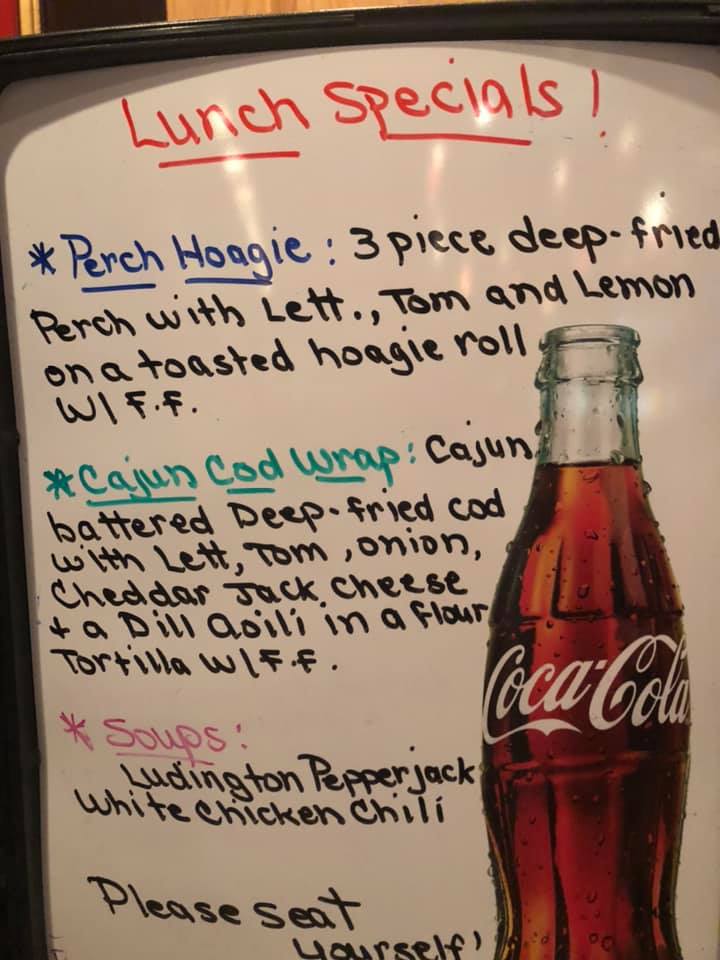 Lunch Specials!
* Perch Hoagie: 3 piece deep-fried
Perch with Lett., Tom and Lemon
on a toasted hoagie roll
W/ F.F.
* Cajun Cod Wrap: Cajun
battered Deep-fried cod
with Lett, Tom, onion,
Cheddar Jack cheese
+ a Dill aoili in a flour
Tortilla W/F.F.
* Soups:
Ludington Pepperjack
White Chicken Chili
Coca-Cola
Please seat
yourself!